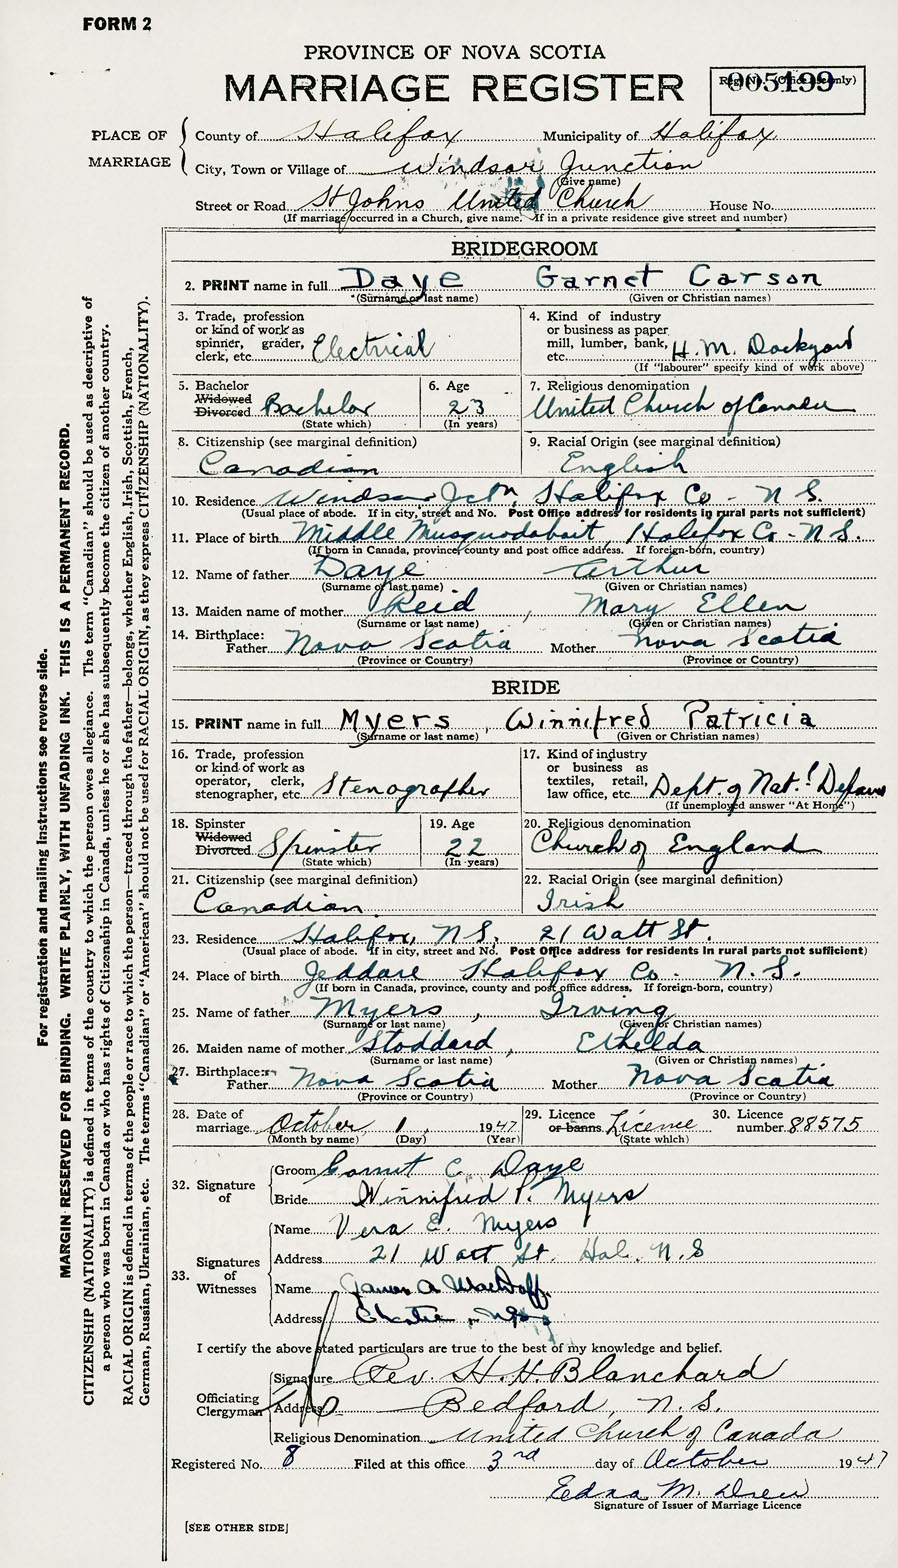 FORM 2
PROVINCE OF NOVA SCOTIA
MARRIAGE REGISTER
005199
PLACE OF MARRIAGE
County of Halifax Municipality of Halifax
City, Town or Village of Windsor Junction
(Give name)
Street or Road St Johns United Church House No.
(If marriage occurred in a Church, give name. If in a private residence give street and number)
BRIDEGROOM
2. PRINT name in full Daye Garnet Carson
(Surname or last name) (Given or Christian names)
3. Trade, profession or kind of work as spinner, grader, clerk, etc. Electrical
4. Kind of industry or business as paper mill, lumber, bank, etc. H.M. Dockyard
(If "labourer" specify kind of work above)
5. Bachelor Widowed Divorced Bachelor
(State which)
6. Age 23
(In years)
7. Religious denomination
United Church of Canada
8. Citizenship (see marginal definition)
Canadian
9. Racial Origin (see marginal definition)
English
10. Residence Windsor Jctn, Halifax Co - N S.
(Usual place of abode. If in city, street and No. Post Office address for residents in rural parts not sufficient)
11. Place of birth Middle Musquodoboit, Halifax Co - N S.
(If born in Canada, province, county and post office address. If foreign-born, country)
12. Name of father Daye Arthur
(Surname or last name) (Given or Christian names)
13. Maiden name of mother Reid, Mary Ellen
(Surname or last name) (Given or Christian names)
14. Birthplace:
Father Nova Scotia Mother Nova Scotia
(Province or Country) (Province or Country)
BRIDE
15. PRINT name in full Myers, Winnifred Patricia
(Surname or last name) (Given or Christian names)
16. Trade, profession or kind of work as operator, clerk, stenographer, etc. Stenographer
17. Kind of industry or business as textiles, retail, law office, etc. Dept. of Nat'l Defence
(If unemployed answer "At Home")
18. Spinster Widowed Divorced Spinster
(State which)
19. Age 22
(In years)
20. Religious denomination
Church of England
21. Citizenship (see marginal definition)
Canadian
22. Racial Origin (see marginal definition)
Irish
23. Residence Halifax, N S. 21 Watt St.
(Usual place of abode. If in city, street and No. Post Office address for residents in rural parts not sufficient)
24. Place of birth Jeddare Halifax Co - N. S.
(If born in Canada, province, county and post office address. If foreign-born, country)
25. Name of father Myers, Irving
(Surname or last name) (Given or Christian names)
26. Maiden name of mother Stoddard, Ethelda
(Surname or last name) (Given or Christian names)
27. Birthplace:
Father Nova Scotia Mother Nova Scotia
(Province or Country) (Province or Country)
28. Date of marriage October 1, 1947
(Month by name) (Day) (Year)
29. Licence or banns Licence
(State which)
30. Licence number 88575
32. Signature of
Groom Garnet C. Daye
Bride Winnifred P. Myers
33. Signatures of Witnesses
Name Vera E. Myers
Address 21 Watt St. Hal. N.S
Name James A
Address
I certify the above stated particulars are true to the best of my knowledge and belief.
Officiating Clergyman
Signature Rev. H. H. Blanchard
Address Bedford, N. S.
Religious Denomination United Church of Canada
Registered No. 8 Filed at this office 3rd day of October 1947
Edna M. Drew
Signature of Issuer of Marriage Licence
[SEE OTHER SIDE]
For registration and mailing instructions see reverse side.
MARGIN RESERVED FOR BINDING. WRITE PLAINLY, WITH UNFADING INK. THIS IS A PERMANENT RECORD.
CITIZENSHIP (NATIONALITY) is defined in terms of the country to which the person owes allegiance. The term "Canadian" should be used as descriptive of
a person who was born in Canada or who has rights of Citizenship in Canada, unless he or she has subsequently become the citizen of another country.
RACIAL ORIGIN is defined in terms of the people or race to which the person—traced through the father—belongs, whether English, Irish, Scottish, French,
German, Russian, Ukrainian, etc. The terms "Canadian" or "American" should not be used for RACIAL ORIGIN, as they express CITIZENSHIP (NATIONALITY).